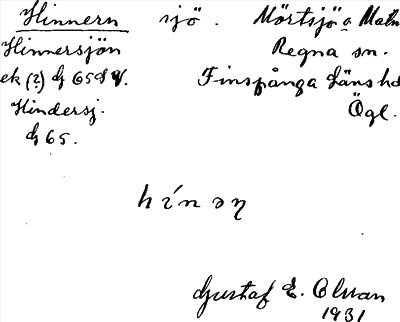 Hinnern sjö. Mörtsjö o Maln
Hinnersjön Regna sn.
ek (?) dj 65 Finspånga Länshd
Hindersj. Ögl.
dj 65.
hínəɳ
Gustaf E. Olman
1931